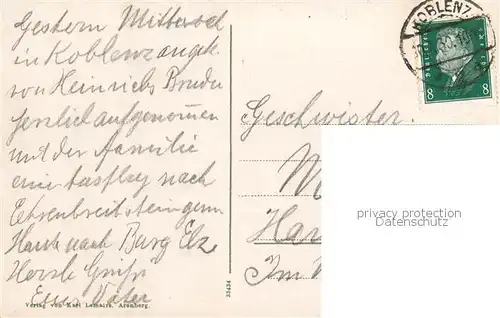 Gestern Mittwoch
in Koblenz angek.
von Heinrichs Bruder
herzlich aufgenommen
mit der Familie
nach
Ehrenbreitstein
Heute nach Burg Elz
Herzl. Grüße
Euer Vater
Verlag von Karl Lemaire, Arenberg.
33434
KOBLENZ
8 8
Geschwister.
privacy protection
Datenschutz